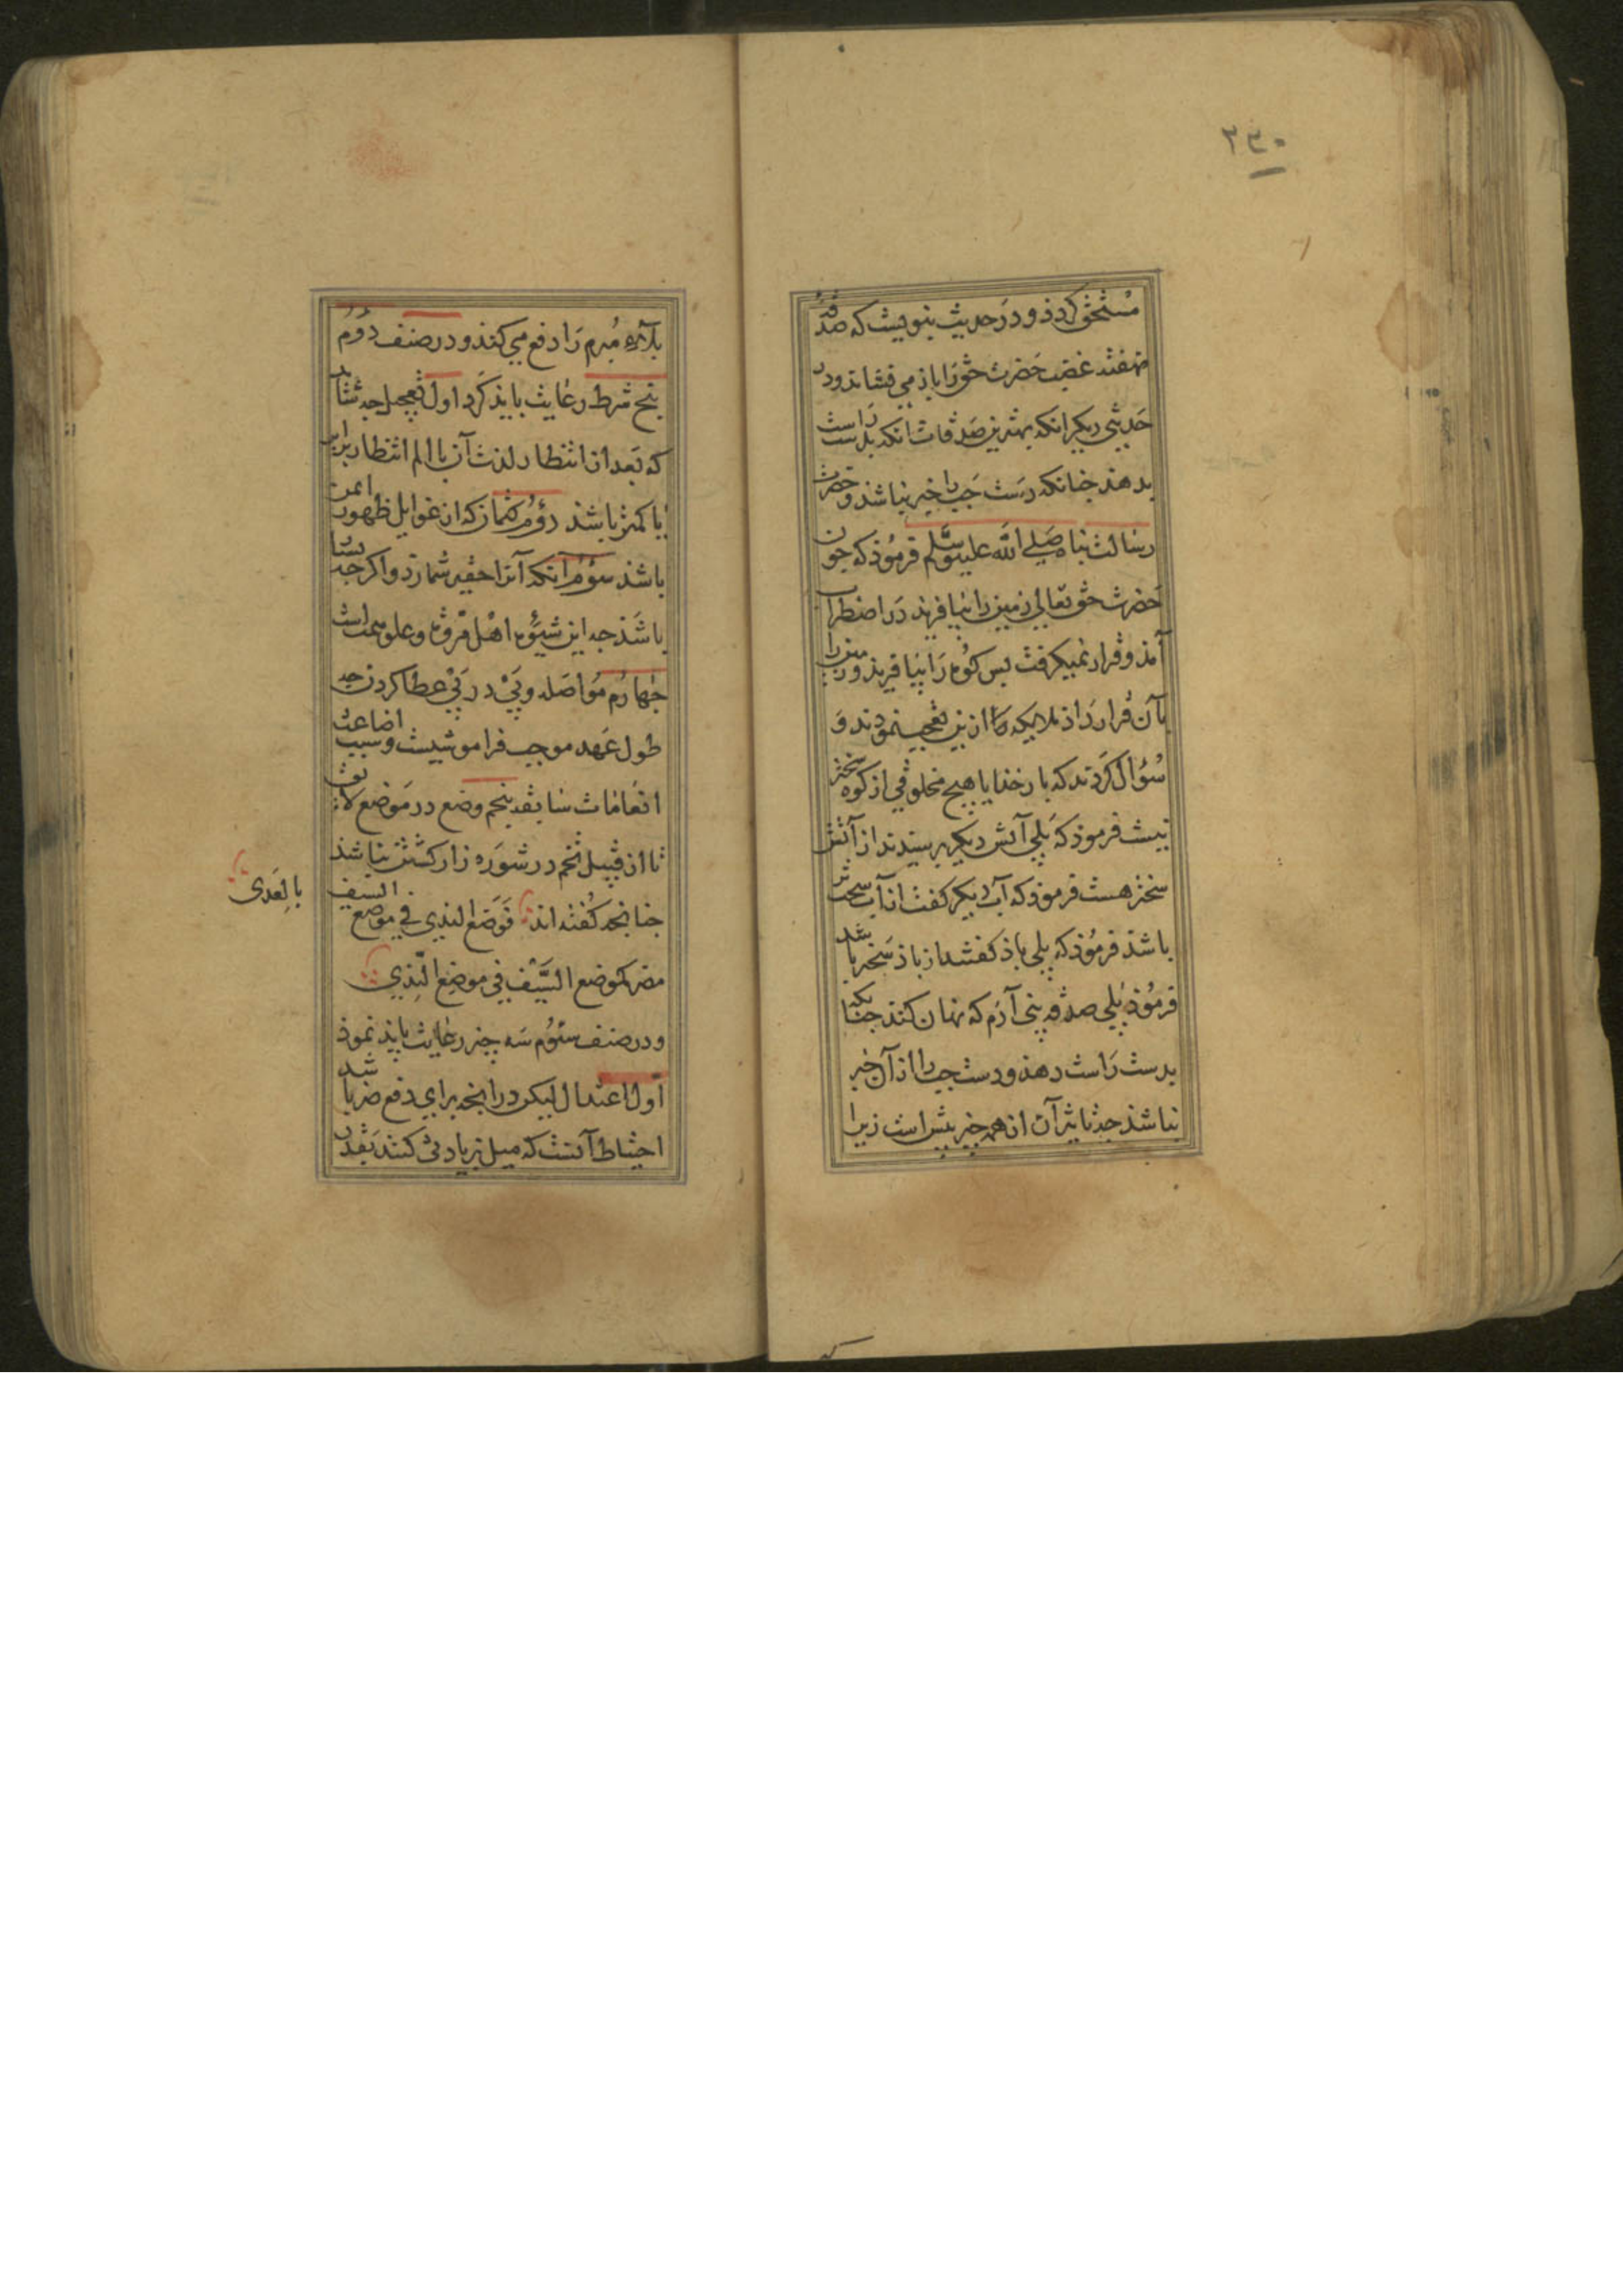 ٢٣٠
مستحق کردد و در حدیث نبویست که صدقهٔ
نهفته غضب حضرت حق را باز می نشاند و در
حدیثی دیکر انکه بهترین صدقات انکه بدست راست
بدهند جنانکه دست جب را خبر نباشد و حضرت
رسالت بناه صلی الله علیه وسلم فرموذ که جون
حضرت حق تعالی زمین را بیافرید در اضطراب
آمد و قرار نمیکرفت بس کوه را بیافرید و زمین را
بآن قرار داد ملایکه ازین تعجب نمودند و
سؤال کردند که بار خدایا هیج مخلوقی از کوه سختر
نیست فرموذ که بلی آتش دیکر برسیدند از آتش
سختر هست فرموذ که آب دیکر کفت از آب سختر
باشد فرموذ که بلی باذ کفتند از باذ سختر باشد
فرموذ بلی صدقه بنی آدم که نهان کند جنانکه
بدست راست دهد و دست جب را از آن خبر
نباشد جه تاثیر آن از همه جیز بیش است زیرا
که
بلاء مبرم را دفع می کند و در صنف دوم
پنج شرط رعایت باید کرد اول تعجیل جه شاید
که بعد از انتظار لذت آن با الم انتظار برابر
یا کمتر باشد دوم کتمان که از غوایل ظهور ایمن
باشد سوم آنکه آنرا حقیر شمارد و اکر جه بسیار
باشد جه این شیوه اهل مروت و علو همت است
جهارم مواصله و پی در پی عطا کردن جه
طول عهد موجب فراموشیست و سبب اضاعت
انعامات سابقه پنجم وضع در موضع لایق
تا از قبیل تخم در شوره زار کشتن نباشد
جنانجه کفته اند فوضع الندی فی موضع السیف
بالعدی
مضر کموضع السیف فی موضع الندی
و در صنف سوم سه چیز رعایت باید نموذ
اول اعتدال لیکن در انجه برای دفع ضر باشد
احتیاط آنست که میل بزیادتی کنند بقدر